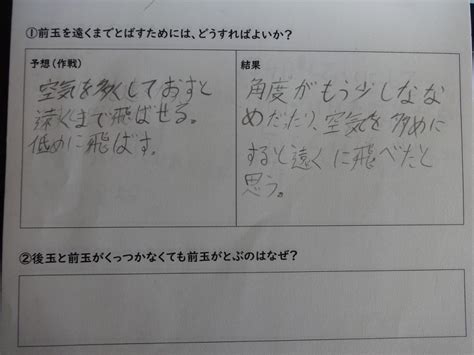 ①前玉を遠くまでとばすためには、どうすればよいか？
予想（作戦）
空気を多くしておすと
遠くまで飛ばせる。
低めに飛ばす。
結果
角度がもう少しなな
めだったり、空気を多めに
すると遠くに飛べたと
思う。
②後玉と前玉がくっつかなくても前玉がとぶのはなぜ？